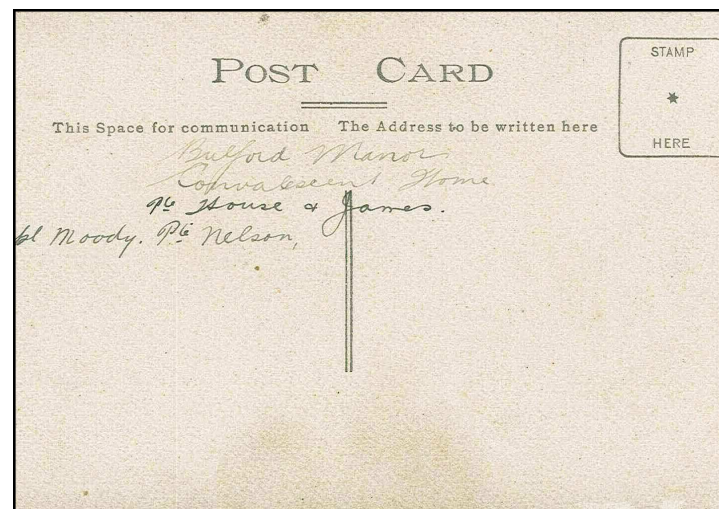 POST CARD
STAMP
HERE
This Space for communication The Address to be written here
Bulford Manor
Convalescent Home
Pte House & James.
pl Moody. Pte Nelson,